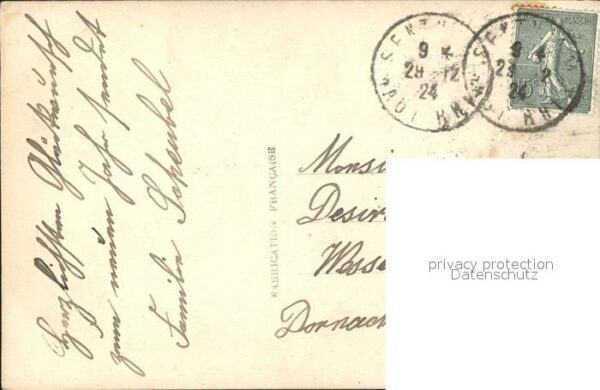 Herzlichsten Glückwunsch
zum neuen Jahr sendet
Familie Scheubel
FABRICATION FRANÇAISE
9 *
29 -12
24
HAUT RHIN
9 *
24
15
Monsi
Desir
Wesse
Dornach
privacy protection
Datenschutz